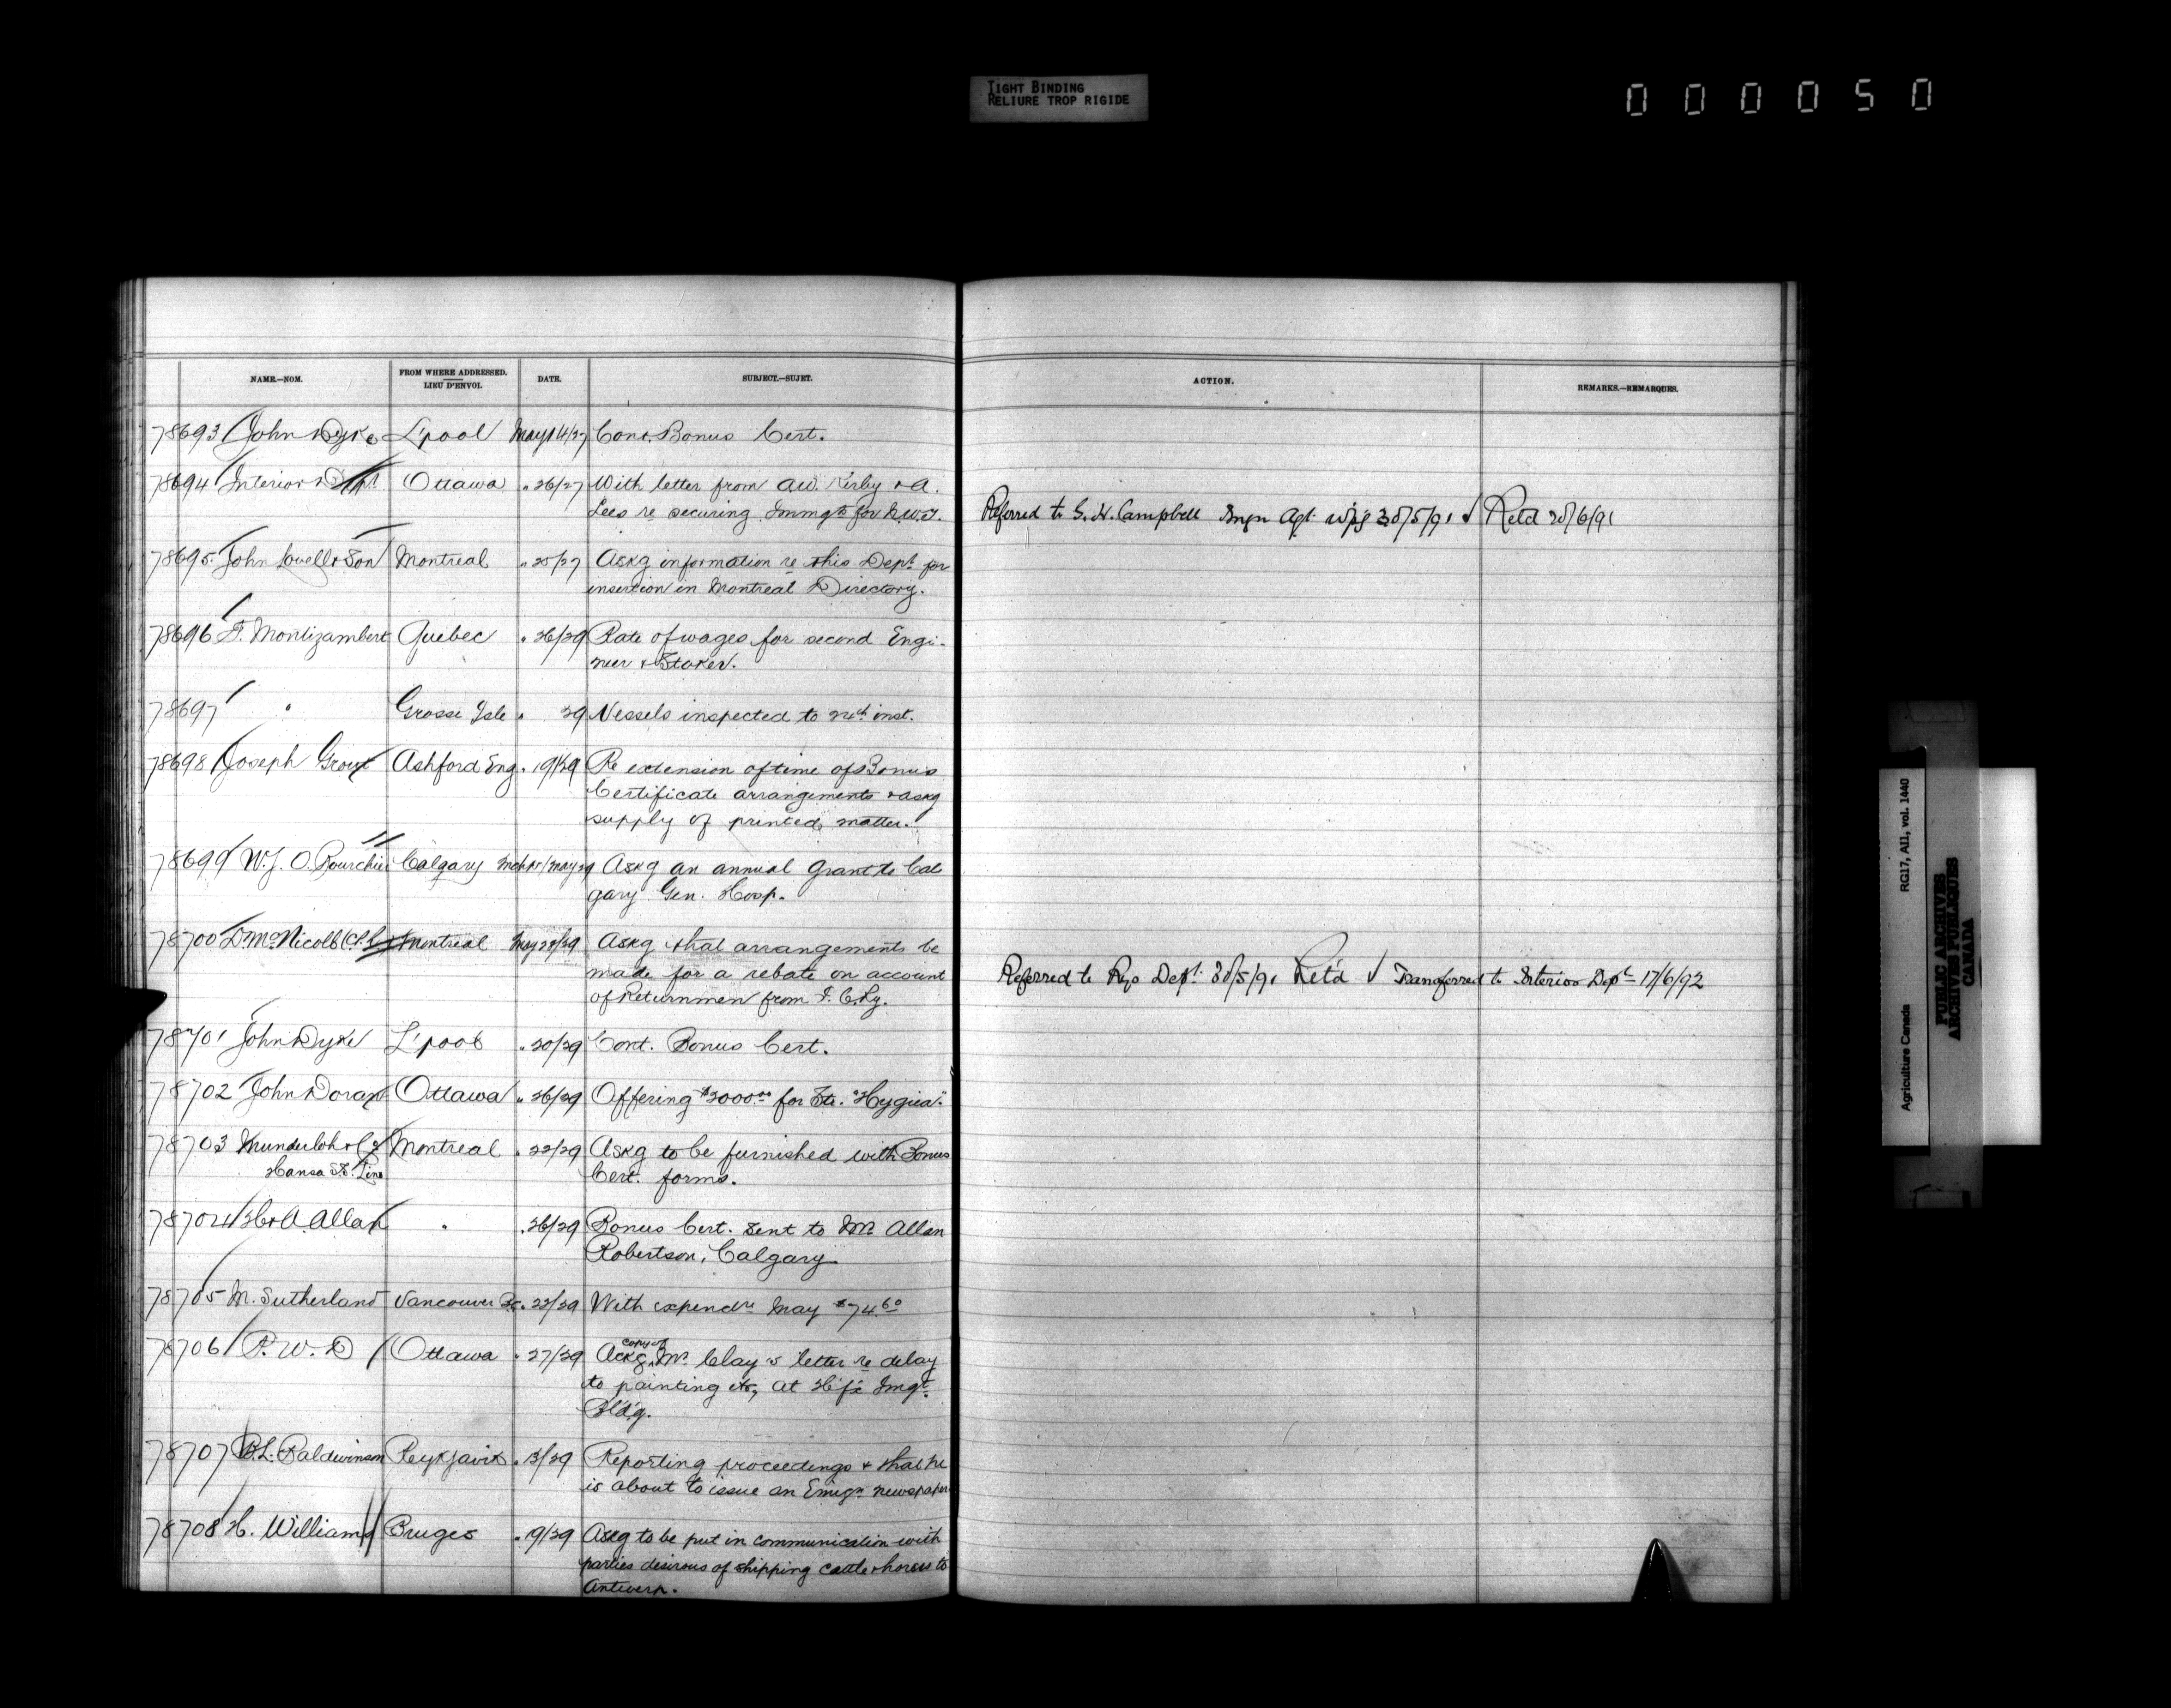 TIGHT BINDING
RELIURE TROP RIGIDE
000050
NAME.—NOM. FROM WHERE ADDRESSED. LIEU D'ENVOI. DATE. SUBJECT.—SUJET. ACTION. REMARKS.—REMARQUES.
78693 John Dyke L'pool May 14/27 Cont. Bonus Cert.
78694 Interior Dept. Ottawa " 26/27 With letter from A.W. Kirby & A.
Lees re securing Immgts for N.W.T. Referred to G. H. Campbell Imgn Agt. Wpg 30/5/91 Retd 20/6/91
78695 John Lovell & Son Montreal " 25/27 Askg information re this Dept. for
insertion in Montreal Directory.
78696 F. Montizambert Quebec " 26/29 Rate of wages for second Engi-
neer & Stoker.
78697 " Grosse Isle " 29 Vessels inspected to inst.
78698 Joseph Grout Ashford Eng. " 19/29 Re extension of time of Bonus
Certificate arrangements & askg
supply of printed matter.
78699 W. J. O. Calgary May 29 Askg an annual Grant to Cal
gary Gen. Hosp.
78700 D. McNicoll Montreal May 28/29 Askg that arrangements be
made for a rebate on account
of Returnmen from Referred to Rys Dept. 30/5/91 Ret'd Transferred to Interior Dept 17/6/92
78701 John Dyke L'pool " 20/29 Cont. Bonus Cert.
78702 John Doran Ottawa " 26/29 Offering for Str. "Hygiea"
78703 Munderloh & Co Montreal " 22/29 Askg to be furnished with Bonus
Hansa St. Line Cert. forms.
78704 H & A. Allan " " 26/29 Bonus Cert. sent to Mr. Allan
Robertson, Calgary
78705 M. Sutherland Vancouver Bc. " 22/29 With expendre May $74.60
78706 P. W. D Ottawa " 27/29 Askg copy of Mr. Clay's letter re delay
to painting etc, at H'fx Imgt.
Bld'g.
78707 B. L. Baldwinson Reykjavik " 13/29 Reporting proceedings & that he
is about to issue an Emign newspaper
78708 H. Williams Bruges " 19/29 Askg to be put in communication with
parties desirous of shipping cattle & horses to
Antwerp.
Agriculture Canada RG17, AII, vol. 1440
PUBLIC ARCHIVES
ARCHIVES PUBLIQUES
CANADA